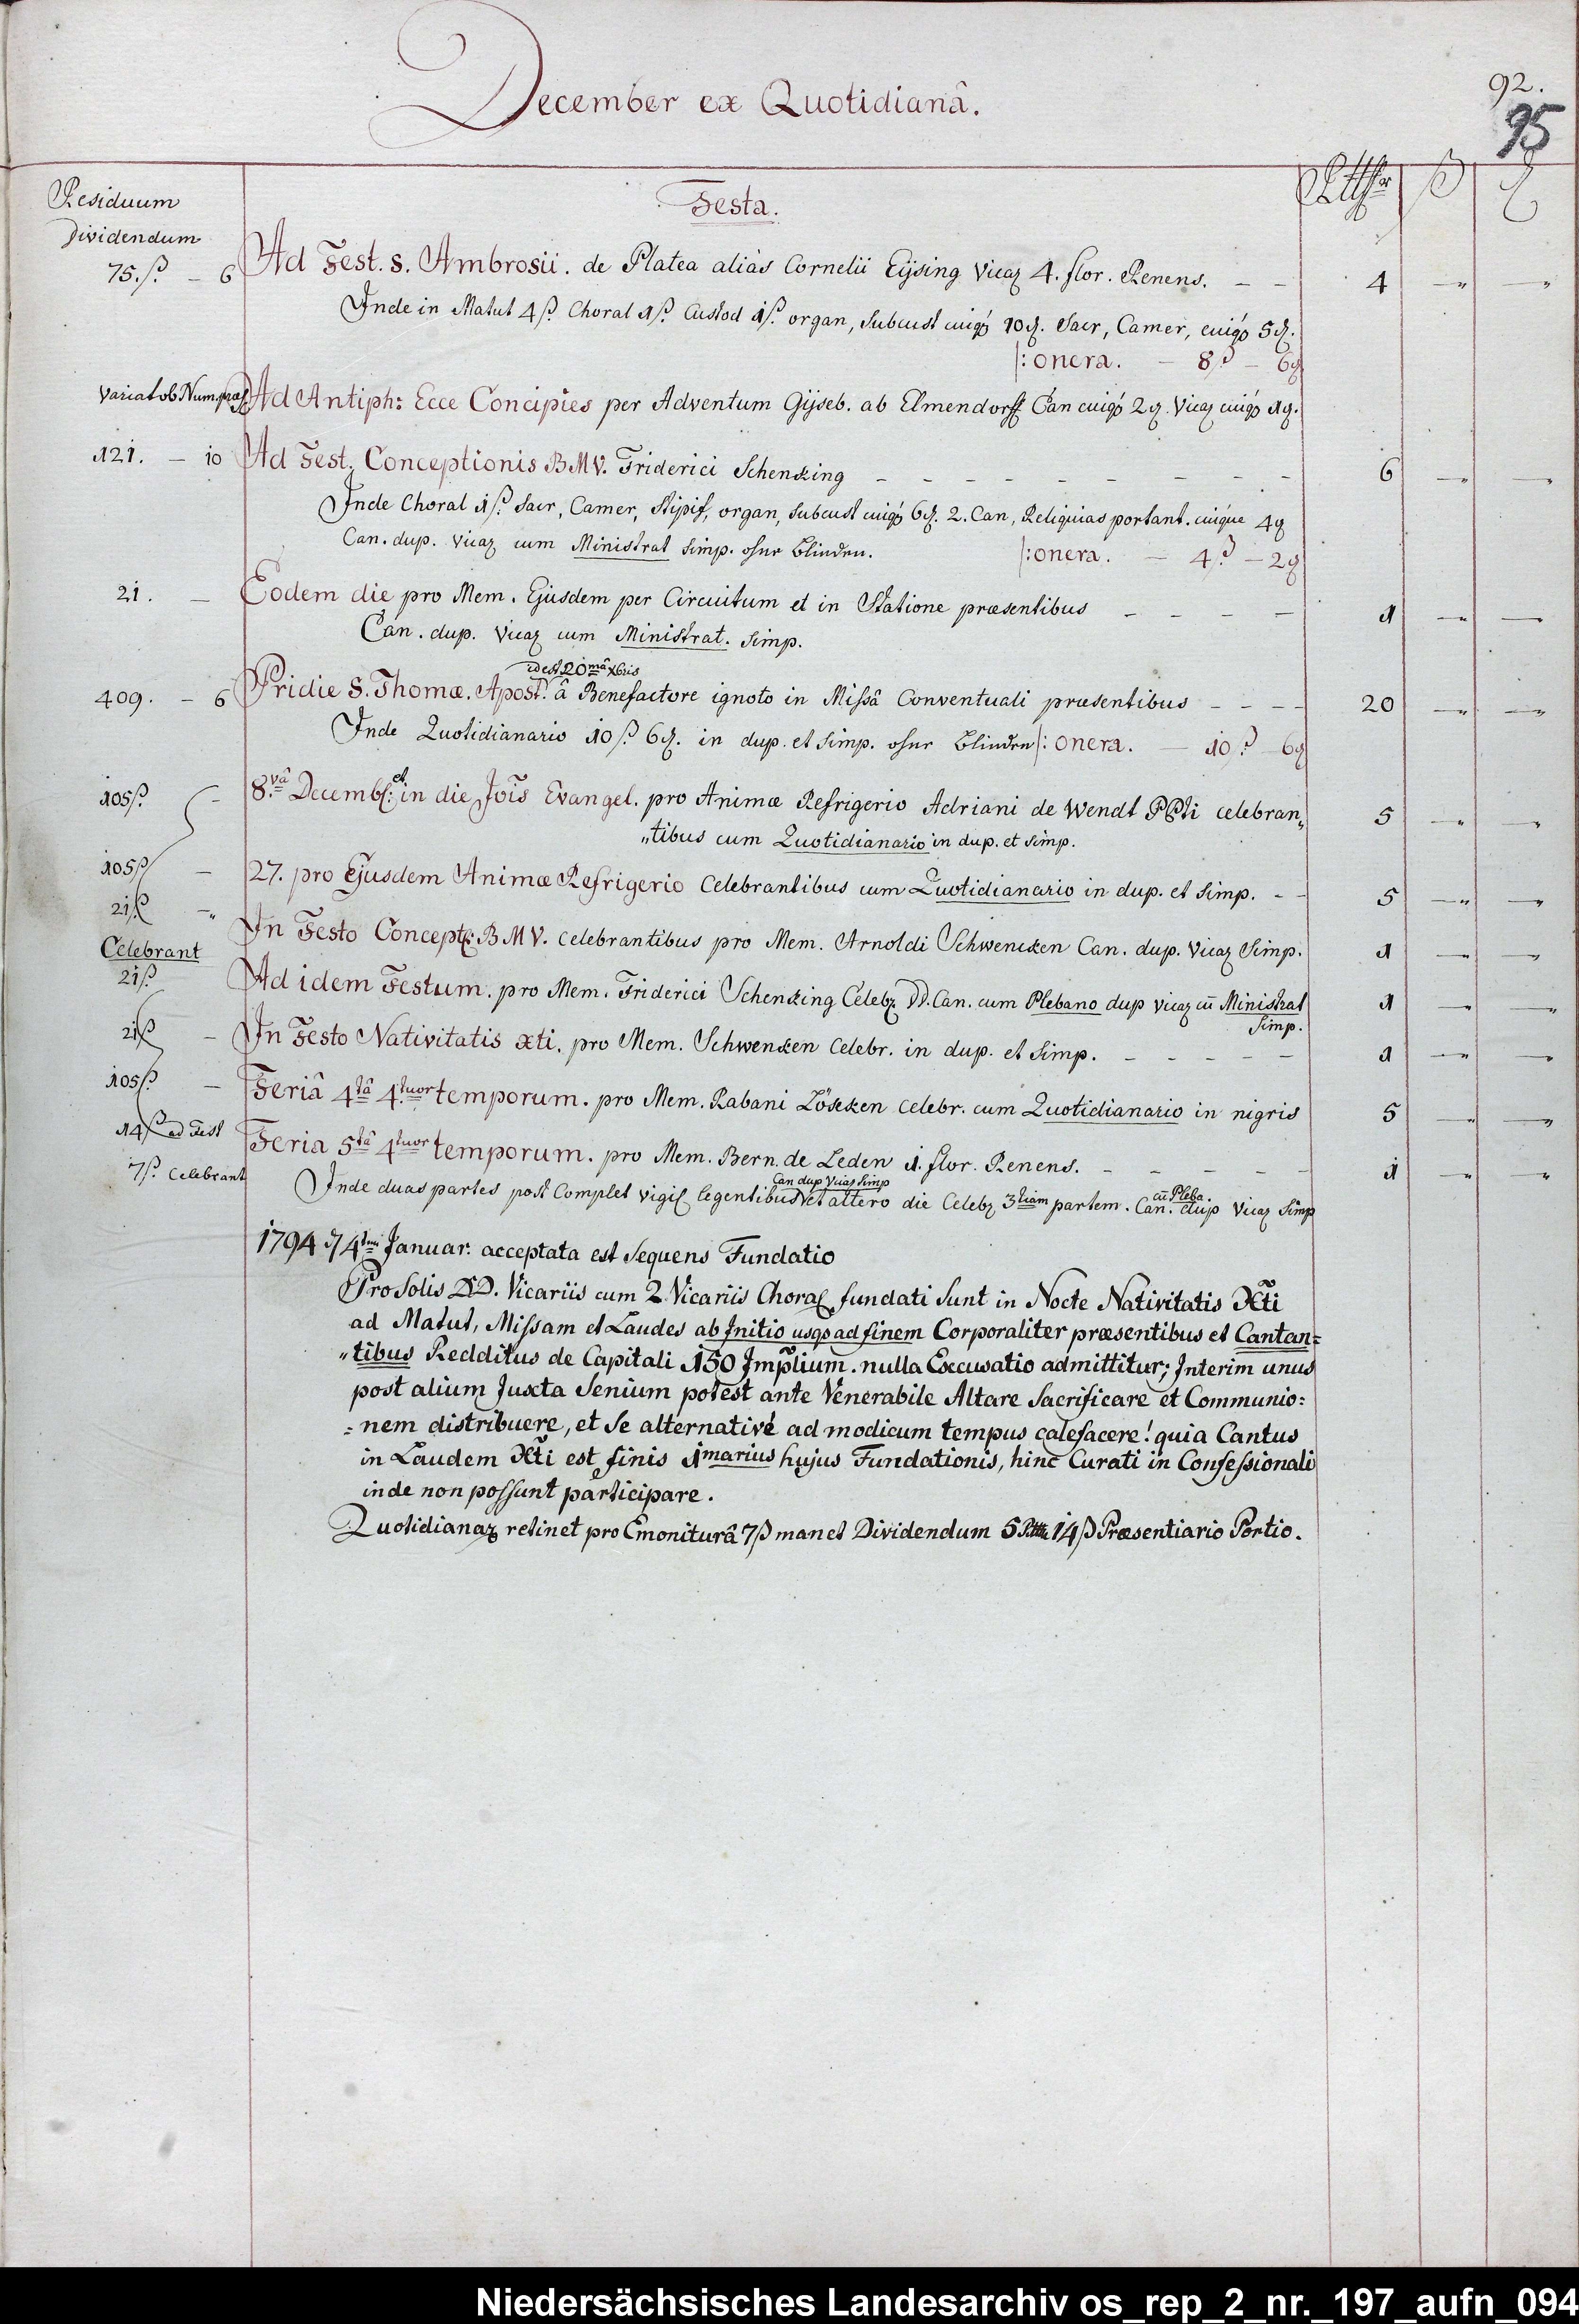 December ex Quotidianâ.
92.
95
Residuum
Dividendum
Festa.
Rtthlr ß ₰
75. ß. – 6 Ad Fest. S. Ambrosii. de Platea aliàs Cornelii Eÿsing Vicaꝝ 4. flor. Renens. – – 4 –„ –„
Inde in Matut 4 ß. Choral 1 ß. Custod 1 ß. organ, Subcust cuiqꝫ 10 ₰. Sacr, Camer, cuiqꝫ 5 ₰.
|: onera. – 8 ß – 6 ₰
Variat ob Num. præs. Ad Antiph: Ecce Concipies per Adventum Gÿseb. ab Elmendorff Can cuiqꝫ 2 ₰. Vicaꝝ cuiqꝫ 1 ₰.
121. – 10 Ad Fest. Conceptionis B M V. Friderici Schenking – – – – – – – – – – 6 –„ –
Inde Choral 1 ß. Sacr, Camer, Stipif, organ, Subcust cuiqꝫ 6 ₰. 2. Can, Reliquias portant. cuique 4 ₰
Can. dup. Vicaꝝ cum Ministrat Simp. ohne Blinden. |: onera. – 4 ß. – 2 ₰
21. – Eodem die pro Mem. Ejusdem per Circuitum et in Statione præsentibus – – – – 1 –„ –
Can. dup. Vicaꝝ cum Ministrat. Simp.
id est 20mâ Xbris
409. – 6 Pridie S. Thomæ. Apost. â Benefactore ignoto in Missâ Conventuali præsentibus – – – – 20 –„ –„
Inde Quotidianario 10 ß. 6 ₰. in dup. et Simp. ohne Blinden |: onera. – 10 ß. – 6 ₰
105 ß. – 8.vâ Decembr: et in die Jois Evangel. pro Animæ Refrigerio Adriani de Wendt PPti celebran„ 5 –„ –„
„tibus cum Quotidianario in dup. et Simp.
105 ß – 27. pro Ejusdem Animæ Refrigerio Celebrantibus cum Quotidianario in dup. et Simp. – – 5 –„ –„
21 ß –„ In Festo Concept: B M V. celebrantibus pro Mem. Arnoldi Schwencken Can. dup. Vicaꝝ Simp. 1 –„ –„
Celebrant
21 ß. Ad idem Festum. pro Mem. Friderici Schenking Celebꝝ DD. Can. cum Plebano dup Vicaꝝ cū Ministrat 1 –„ –„
Simp.
21 ß – In Festo Nativitatis Xti. pro Mem. Schwenken Celebr. in dup. et Simp. – – – – – 1 –„ –„
105 ß. – Feriâ 4tâ 4tuor temporum. pro Mem. Rabani Lösеken celebr. cum Quotidianario in nigris 5 –„ –„
14 ß ad Fest Feria 5tâ 4tuor temporum. pro Mem. Bern. de Leden 1. flor. Renens. – – – – – 1 –„ „
7 ß. Celebrant
Can dup Vicaꝝ Simp cū Pleba.
Inde duas partes post Complet Vigil legentibus et altero die Celebꝝ 3tiam partem. Can. dup Vicaꝝ Simp
1794 d 4tni Januar. acceptata est Sequens Fundatio
Pro Solis DD. Vicariis cum 2 Vicariis Choral fundati Sunt in Nocte Nativitatis Xti
ad Matut, Missam et Laudes ab Initio usqꝫ ad finem Corporaliter præsentibus et Cantan=
„tibus Redditus de Capitali 150 Implium. nulla Excusatio admittitur; Interim unus
post alium Juxta Senium potest ante Venerabile Altare Sacrificare et Communio=
=nem distribuere, et Se alternativé ad modicum tempus calefacere! quia Cantus
in Laudem Xti est finis 1marius hujus Fundationis, hinc Curati in Confessionali
inde non possunt participare.
Quotidianaꝝ retinet pro Emoniturâ 7 ß manet Dividendum 5 Rtthlr 14 ß Præsentiario Portio.
Niedersächsisches Landesarchiv os_rep_2_nr._197_aufn_094